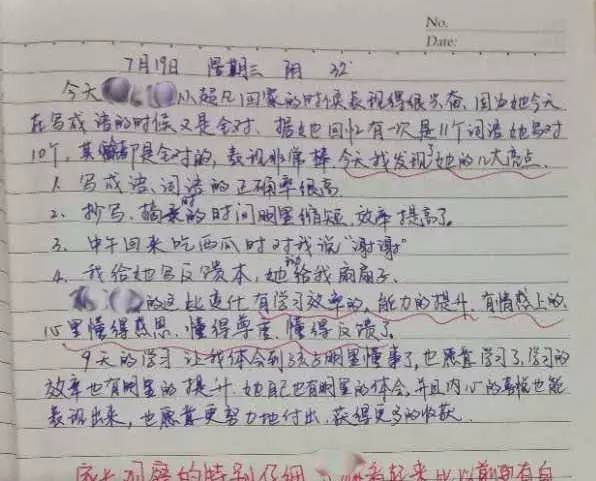 No.
Date:
7月19日 星期三 阴 32°
今天 从超凡回家的时候表现得很兴奋,因为她今天
在写成语的时候又是全对、据她回忆有一次是11个词语她写对
10个,其 都是全对的,表现非常棒,今天我发现了她的几大亮点.
1. 写成语、词语的正确率很高
2. 抄写、摘录的时间明显缩短,效率提高了。
3. 中午回来吃西瓜时对我说“谢谢”
4. 我给她写反馈本,她给我扇扇子.
的这些变化有学习效率的,能力的提升,有情感上的,
心里懂得感恩、懂得尊重、懂得反馈了。
9天的学习 让我体会到孩子明显懂事了,也愿意学习了,学习的
效率也有明显的提升,她自己也有明显的体会,并且内心的喜悦也能
表现出来,也愿意更努力地付出,获得更多的收获.
家长观察的特别仔细 看起来比以前更有自